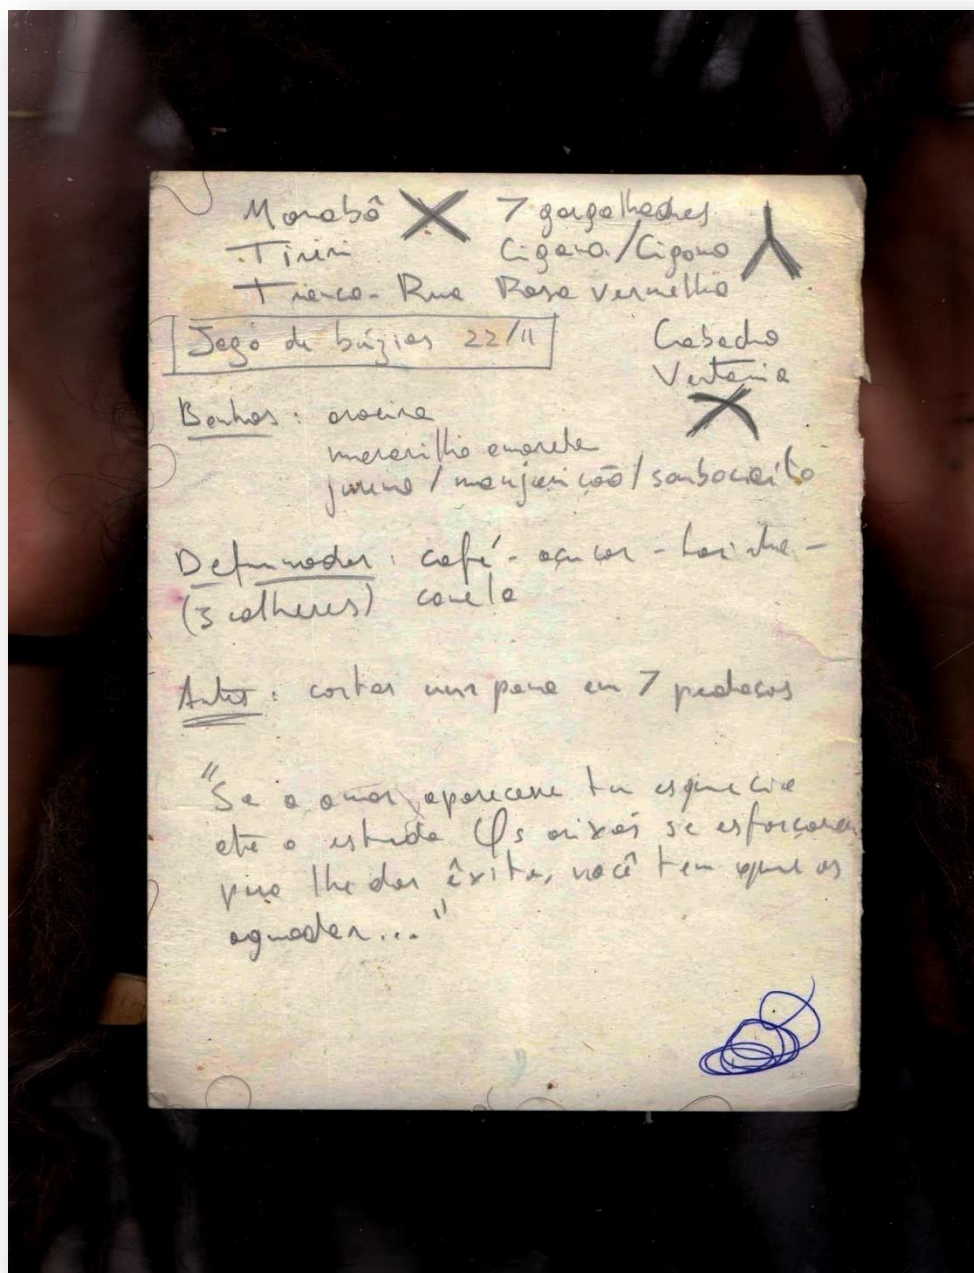 Marabô 7 gargalhadas
Tiriri Cigana/Cigano
Tranca-Rua Rosa Vermelha
Jogo de búzios 22/11
Caboclo
Ventania
Banhos: aroeira
maravilha amarela
jurema/manjericão/sabugueiro
Defumador: café-açucar-farinha-
(3 colheres) canela
Antes: cortar um pano em 7 pedaços
"Se o amor aparecesse tu esquecia
até o estudo. Os orixás se esforçaram
para lhe dar êxito, você tem que os
agradar..."